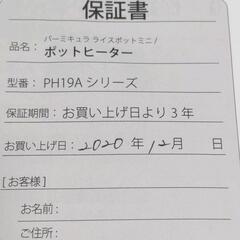 保証書
品名： バーミキュラ ライスポットミニ /
ポットヒーター
型番： PH19A シリーズ
保証期間： お買い上げ日より 3 年
お買い上げ日： 2020 年 12 月 日
[ お客様 ]
お名前：
ご住所：